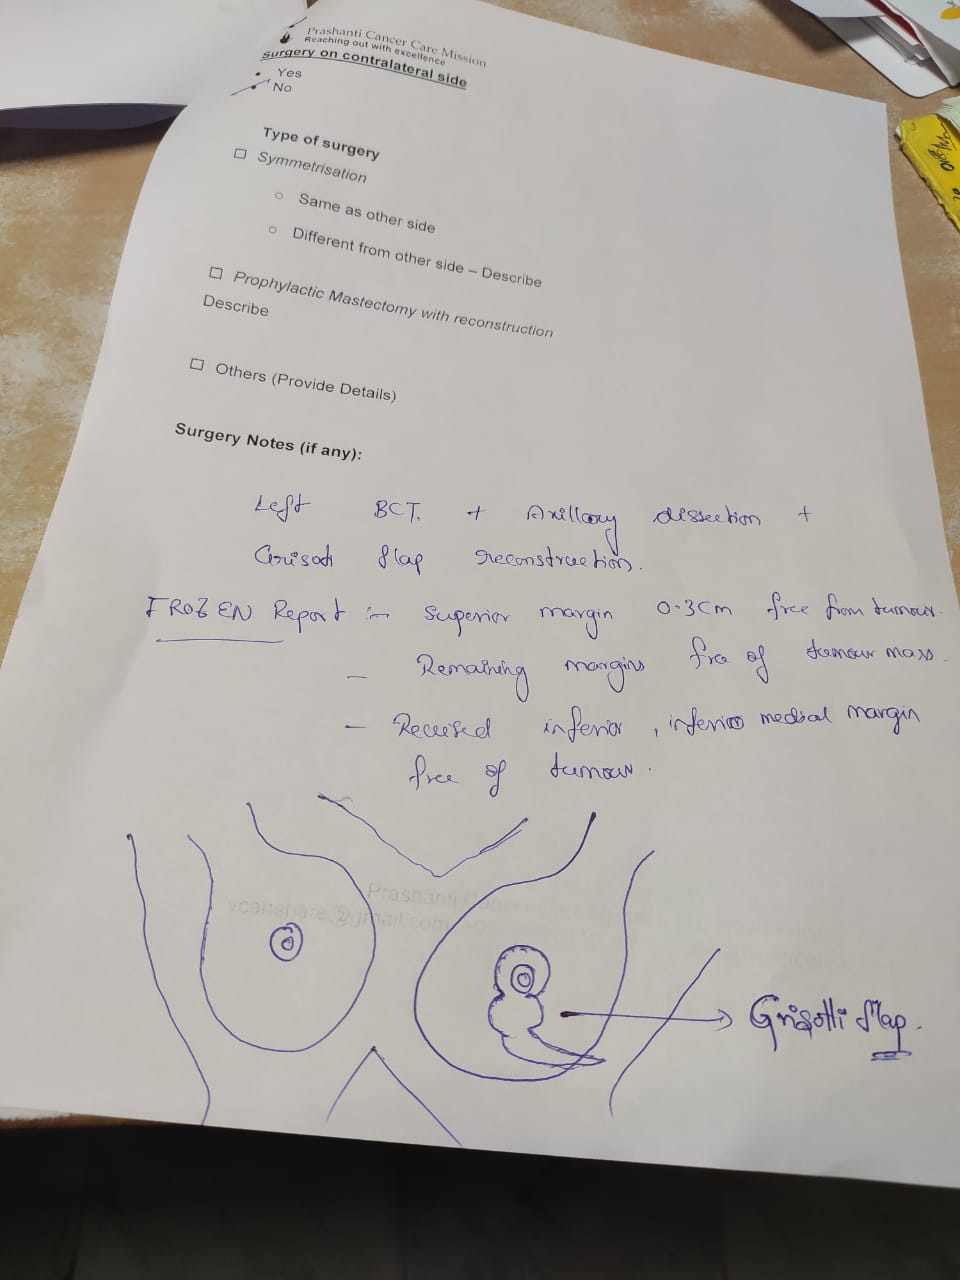 Prashanti Cancer Care Mission
Reaching out with excellence
Surgery on contralateral side
• Yes
• No
Type of surgery
☐ Symmetrisation
○ Same as other side
○ Different from other side – Describe
☐ Prophylactic Mastectomy with reconstruction
Describe
☐ Others (Provide Details)
Surgery Notes (if any):
Left BCT. + Axillary dissection +
Grisoti flap reconstruction.
FROZEN Report :- Superior margin 0.3cm free from tumour.
– Remaining margins fre of tumour mass.
– Receised inferior, inferioo medial margin
free of tumour.
Prashanti
vcanshare@gmail.com
Grisotti flap.